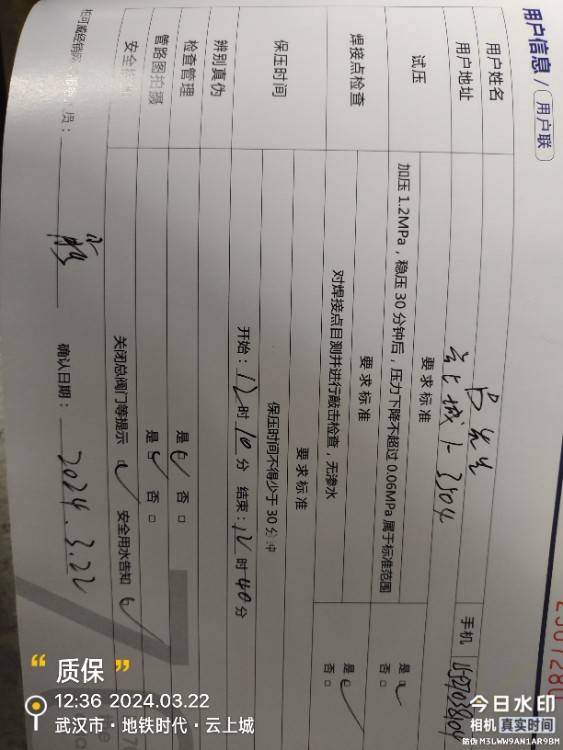 用户信息 / 用户联
用户姓名 先生 手机
用户地址 云上城1-3504
试压 要求标准
加压 1.2MPa,稳压 30 分钟后,压力下降不超过 0.06MPa 属于标准范围 是 否
焊接点检查 要求标准
对焊接点目测并进行敲击检查,无渗水 是 否
保压时间 要求标准
保压时间不得少于 30 分钟
开始:12 时 10 分 结束:12 时 40 分
辨别真伪
检查管理 是 否
管路图拍摄 是 否
安全 关闭总阀门等提示 安全用水告知
员: 确认日期: 2024.3.22
2307280
“质保”
12:36 2024.03.22
武汉市·地铁时代·云上城
今日水印
相机 真实时间
防伪 M3LWW9AN1AR9BM